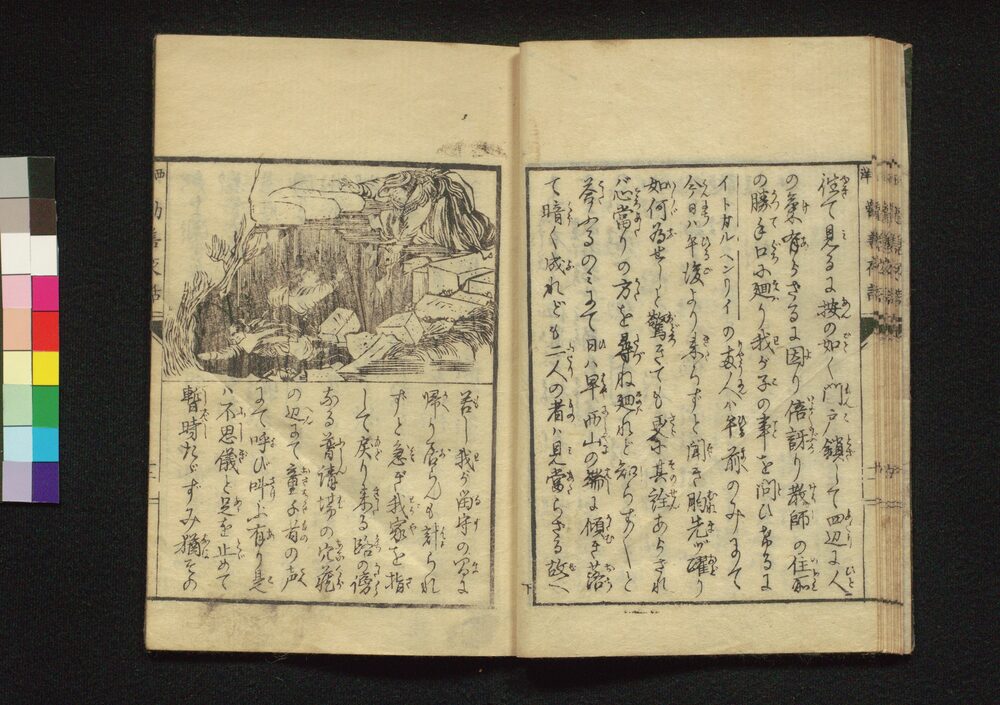 往て見るに按の如く門戸鎖して四辺に人
の気有らざるに因り倍訝り教師の住所
の勝手口に廻り我が子の事を問ひ希るに
イトカルヘンリイの両人ハ午前のみにて
今日ハ午後より来らずと聞き胸先が躍り
如何為せしと驚きても更に其詮あらされ
バ心當りの方を尋ね廻れど知らずしと
答ふるのミにて日ハ早西山の端に傾き落
て暗く成れども二人の者ハ見當らざる故へ
若し我が留守の間に
帰りて居らんも計られ
ずと急ぎ我家を指
して戻り来る路の傍
なる普請場の穴蔵
の辺にて童子有の声
にて呼び叫ぶ有り是
ハ不思儀と足を止めて
暫時たゝずみ猶その